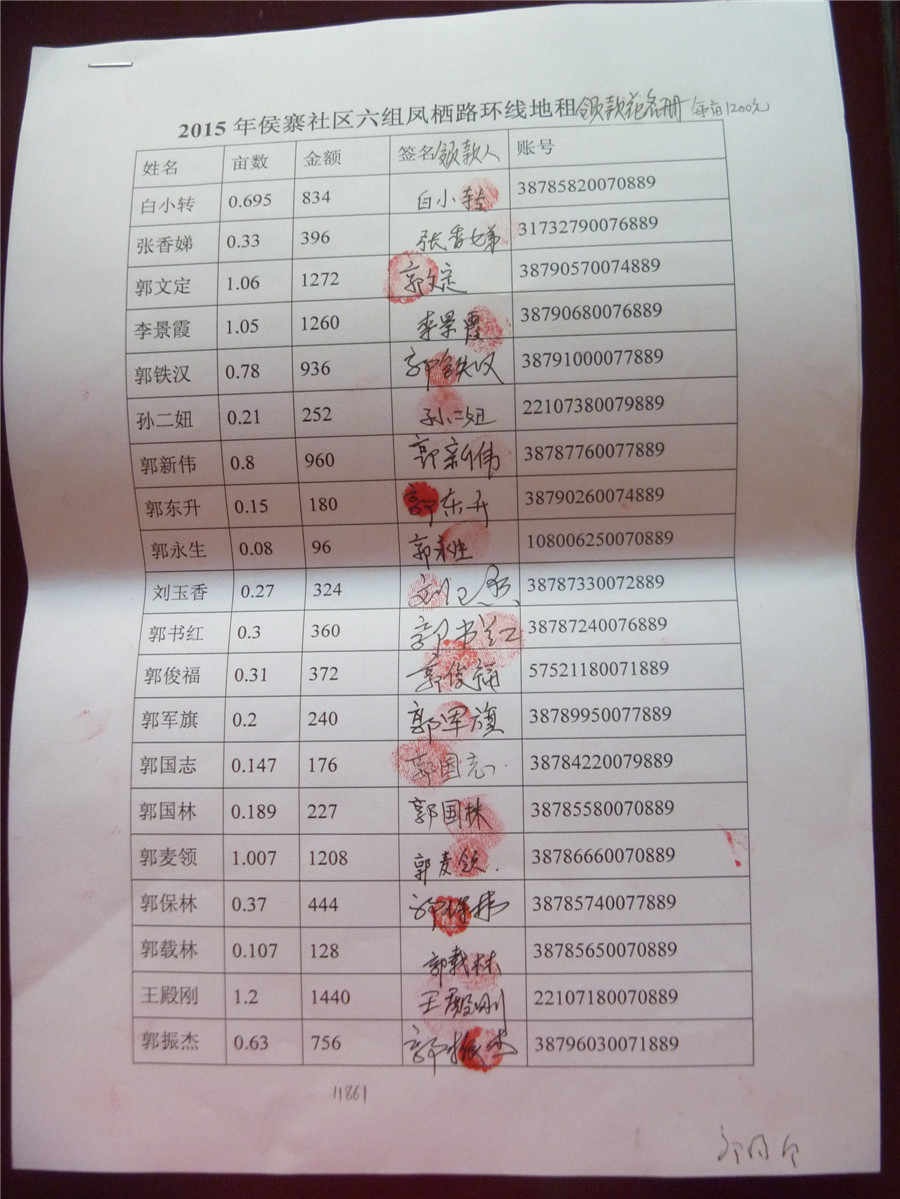 2015 年侯寨社区六组凤栖路环线地租领款花名册 每亩1200元
姓名 亩数 金额 签名领款人 账号
白小转 0.695 834 白小转 38785820070889
张香娣 0.33 396 张香娣 31732790076889
郭文定 1.06 1272 郭文定 38790570074889
李景霞 1.05 1260 李景霞 38790680076889
郭铁汉 0.78 936 郭铁汉 38791000077889
孙二妞 0.21 252 孙二妞 22107380079889
郭新伟 0.8 960 郭新伟 38787760077889
郭东升 0.15 180 郭东升 38790260074889
郭永生 0.08 96 郭永生 108006250070889
刘玉香 0.27 324 刘玉香 38787330072889
郭书红 0.3 360 郭书红 38787240076889
郭俊福 0.31 372 郭俊福 57521180071889
郭军旗 0.2 240 郭军旗 38789950077889
郭国志 0.147 176 郭国志 38784220079889
郭国林 0.189 227 郭国林 38785580070889
郭麦领 1.007 1208 郭麦领 38786660070889
郭保林 0.37 444 郭保林 38785740077889
郭载林 0.107 128 郭载林 38785650070889
王殿刚 1.2 1440 王殿刚 22107180070889
郭振杰 0.63 756 郭振杰 38796030071889
11861